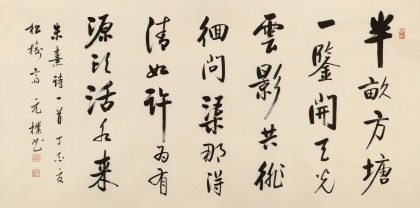 半畝方塘
一鑒開天光
雲影共徘
徊問渠那得
清如許為有
源頭活水來
朱熹詩一首丁亥夏
松樵齋元樸書